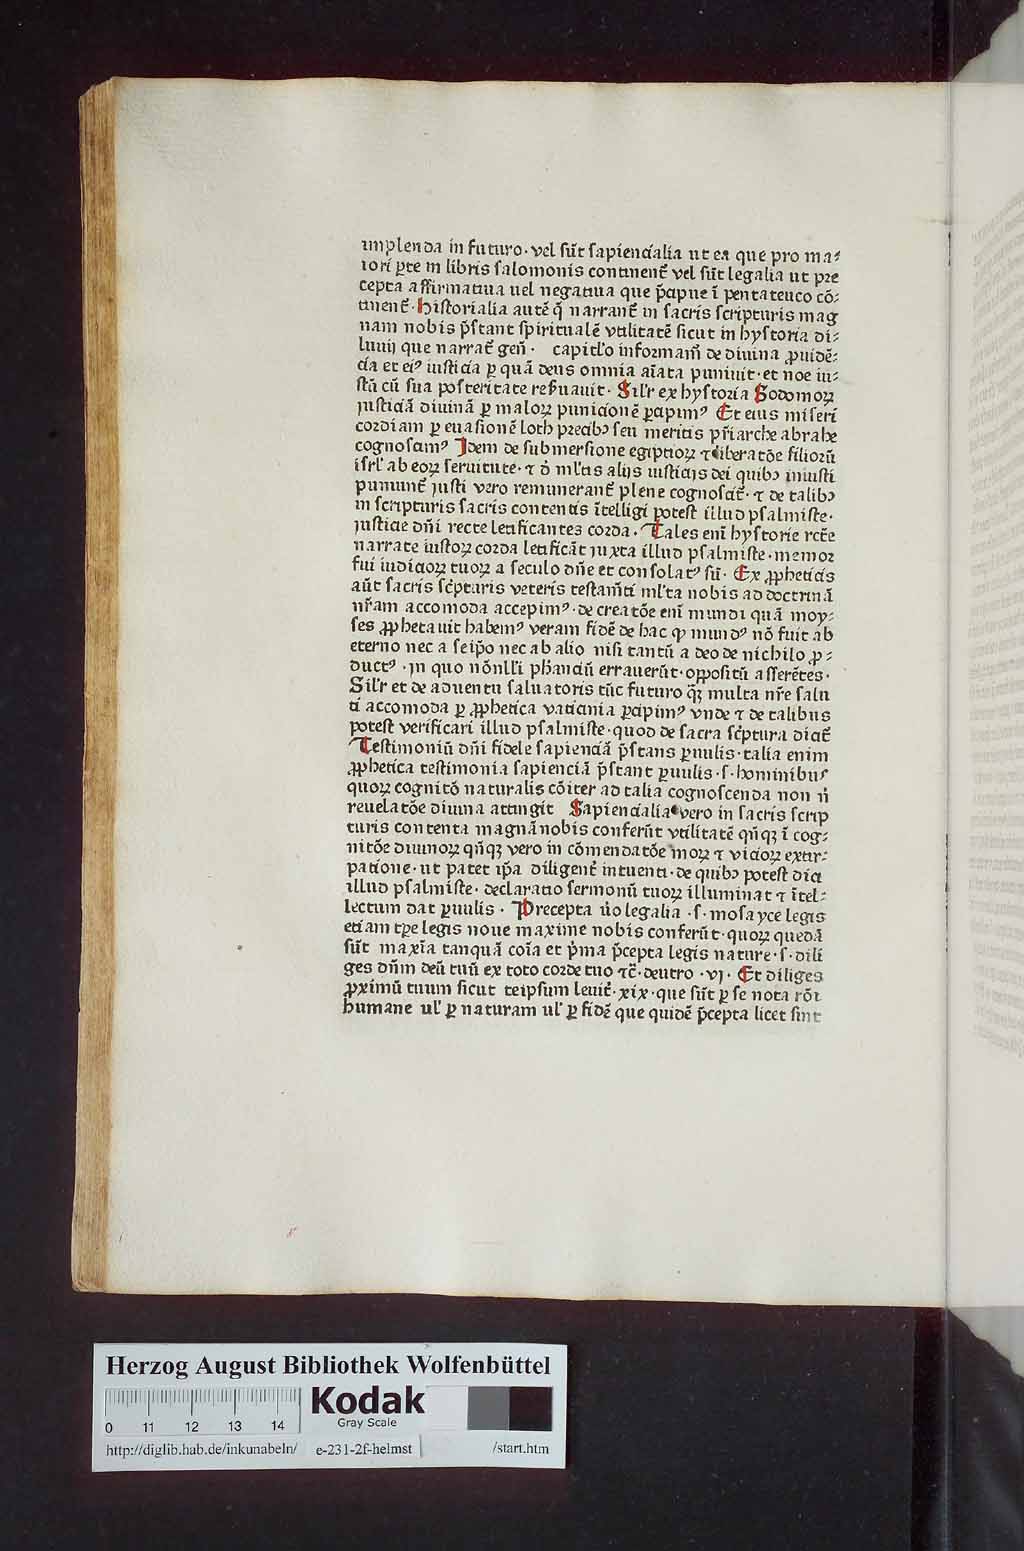 implenda in futuro · vel sūt sapiencialia ut ea que pro ma⸗
iori ꝑte in libris salomonis continent᷑ vel sūt legalia ut pre
cepta affirmatiua uel negatiua que p̄cipue ī pentateuco cō⸗
tinent᷑ · Historialia autē q̄ narrant᷑ in sacris scripturis mag
nam nobis p̄stant spiritualē vtilitatē sicut in hystoria di⸗
luuij que narrat᷑ gen̄ · capitl'o informam̄ de diuina ꝓuidē⸗
cia et eiꝰ iusticia ꝑ quā deus omnia aīata puniuit · et noe iu⸗
stū cū sua posteritate res̄uauit · Sil'r ex hystoria Sodomoꝝ
justiciā diuinā ꝑ maloꝝ punicionē ꝑcipimꝰ Et eius miseri
cordiam ꝑ euasionē loth precibꝫ seu meritis pr̄iarche abrahe
cognoscamꝰ Idem de submersione egiptioꝝ ⁊ liberatōe filioꝝ
isrl' ab eoꝝ seruitute · ⁊ d̄ ml'tis alijs iusticijs dei quibꝫ iniusti
puniunt᷑ justi vero remunerant᷑ plene cognoscit᷑ · ⁊ de talibꝫ
in scripturis sacris contentis ītelligi potest illud psalmiste ·
justicie dn̄i recte letificantes corda · Tales eni᷑ hystorie rcte᷑
narrate iustoꝝ corda letificāt juxta illud psalmiste · memor
fui iudicioꝝ tuoꝝ a seculo dn̄e et consolatꝰ sū · Ex ꝓpheticis
aūt sacris sc̄pturis veteris testam̄ti ml'ta nobis ad doctrinā
nr̄am accomoda accepimꝰ · de creatōe eni᷑ mundi quā moy⸗
ses ꝓphetauit habemꝰ veram fidē de hac ꝙ mundꝰ nō fuit ab
eterno nec a seip̄o nec ab alio nisi tantū a deo de nichilo ꝓ⸗
ductꝰ · in quo nōnll'i ph̄anciū errauerūt · oppositū asserētes ·
Sil'r et de aduentu saluatoris tūc futuro q̄ꝫ multa nr̄e salu
ti accomoda ꝑ ꝓphetica vaticinia ꝑcipimꝰ vnde ⁊ de talibus
potest verificari illud psalmiste · quod de sacra sc̄ptura dicit᷑
Testimoniū dn̄i fidele sapienciā p̄stans ꝑuulis · talia enim
ꝓphetica testimonia sapienciā p̄stant ꝑuulis · s · hominibus
quoꝝ cognitō naturalis cōiter ad talia cognoscenda non n̄
reuelatōe diuina attingit Sapiencialia vero in sacris scrip
turis contenta magnā nobis conferūt vtilitatē qn̄qꝫ ī cog⸗
nitōe diuinoꝝ qn̄qꝫ vero in cōmendatōe moꝝ ⁊ vicioꝝ extir⸗
patione · ut patet ip̄a diligent᷑ intuenti · de quibꝫ potest dici
illud psalmiste · declaratio sermonū tuoꝝ illuminat ⁊ ītel⸗
lectum dat ꝑuulis · Precepta v̄o legalia · s · mosayce legis
etiam tꝑe legis noue maxime nobis conferūt · quoꝝ quedā
sūt maxīa tanquā coīa et p̄ma p̄cepta legis nature · s · dili
ges dn̄m deū tuū ex toto corde tuo ⁊c̄ · deutro · vj · Et diliges
ꝓximū tuum sicut teipsum leuit᷑ · xix · que sūt ꝑ se nota rōi
humane ul' ꝑ naturam ul' ꝑ fidē que quidē p̄cepta licet sint
Herzog August Bibliothek Wolfenbüttel
0 11 12 13 14
Kodak
Gray Scale
http://diglib.hab.de/inkunabeln/ e-231-2f-helmst /start.htm